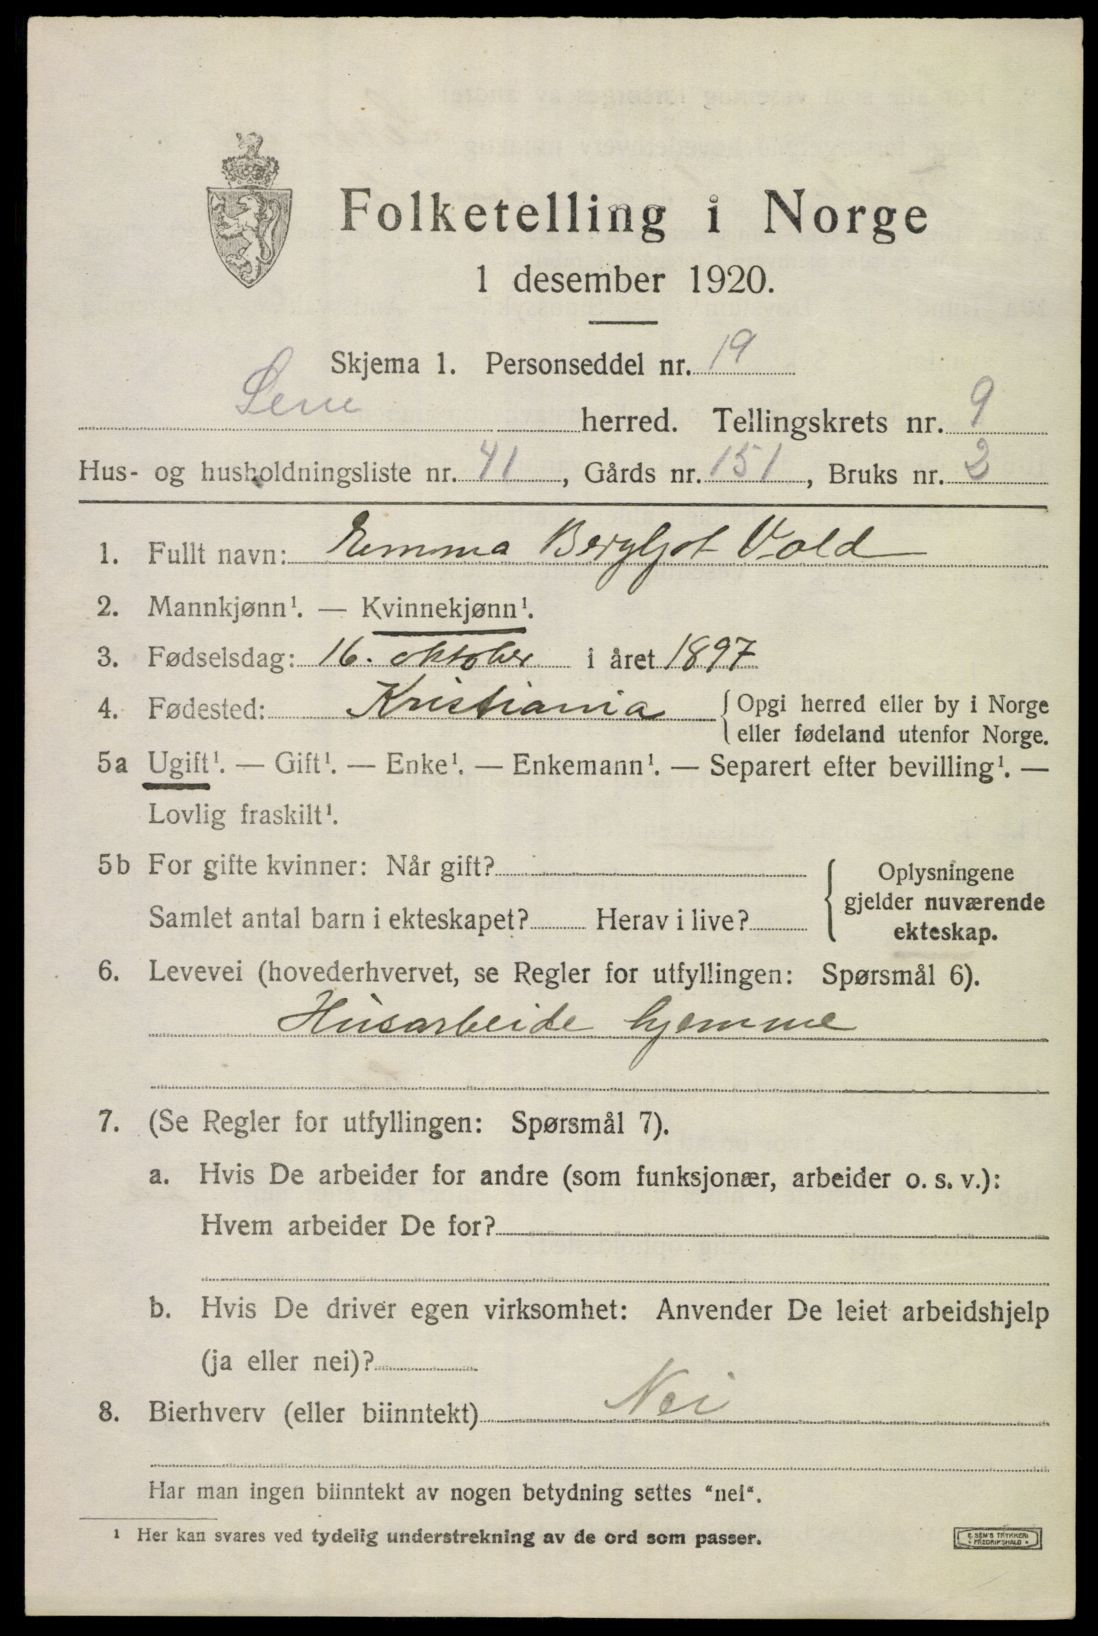 Folketelling i Norge
1 desember 1920.
Skjema 1. Personseddel nr. 19
herred. Tellingskrets nr. 9
Hus- og husholdningsliste nr. 41, Gårds nr. 151, Bruks nr. 2
1. Fullt navn: Emma Bergljot Vold
2. Mannkjønn¹. — Kvinnekjønn¹.
3. Fødselsdag: 16. oktober i året 1897
4. Fødested: Kristiania {Opgi herred eller by i Norge
eller fødeland utenfor Norge.
5a Ugift¹. — Gift¹. — Enke¹. — Enkemann¹. — Separert efter bevilling¹. —
Lovlig fraskilt¹.
5b For gifte kvinner: Når gift?
Samlet antal barn i ekteskapet? Herav i live?
{Oplysningene
gjelder nuværende
ekteskap.
6. Levevei (hovederhvervet, se Regler for utfyllingen: Spørsmål 6).
Husarbeide hjemme
7. (Se Regler for utfyllingen: Spørsmål 7).
a. Hvis De arbeider for andre (som funksjonær, arbeider o. s. v.):
Hvem arbeider De for?
b. Hvis De driver egen virksomhet: Anvender De leiet arbeidshjelp
(ja eller nei)?
8. Bierhverv (eller biinntekt) Nei
Har man ingen biinntekt av nogen betydning settes "nei".
¹ Her kan svares ved tydelig understrekning av de ord som passer.
E. SEM'S TRYKKERI
FREDRIKSHALD